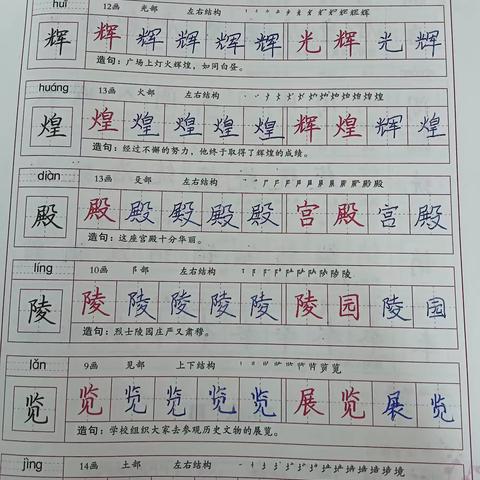 huī 12画 光部 左右结构
辉 辉 辉 辉 辉 辉 光 辉 光 辉
造句：广场上灯火辉煌，如同白昼。
huáng 13画 火部 左右结构
煌 煌 煌 煌 煌 煌 辉 煌 辉 煌
造句：经过不懈的努力，他终于取得了辉煌的成绩。
diàn 13画 殳部 左右结构
殿 殿 殿 殿 殿 殿 宫 殿 宫 殿
造句：这座宫殿十分华丽。
líng 10画 阝部 左右结构
陵 陵 陵 陵 陵 陵 陵 园 陵 园
造句：烈士陵园庄严又肃穆。
lǎn 9画 见部 上下结构
览 览 览 览 览 览 展 览 展 览
造句：学校组织大家去参观历史文物的展览。
jìng 14画 土部 左右结构